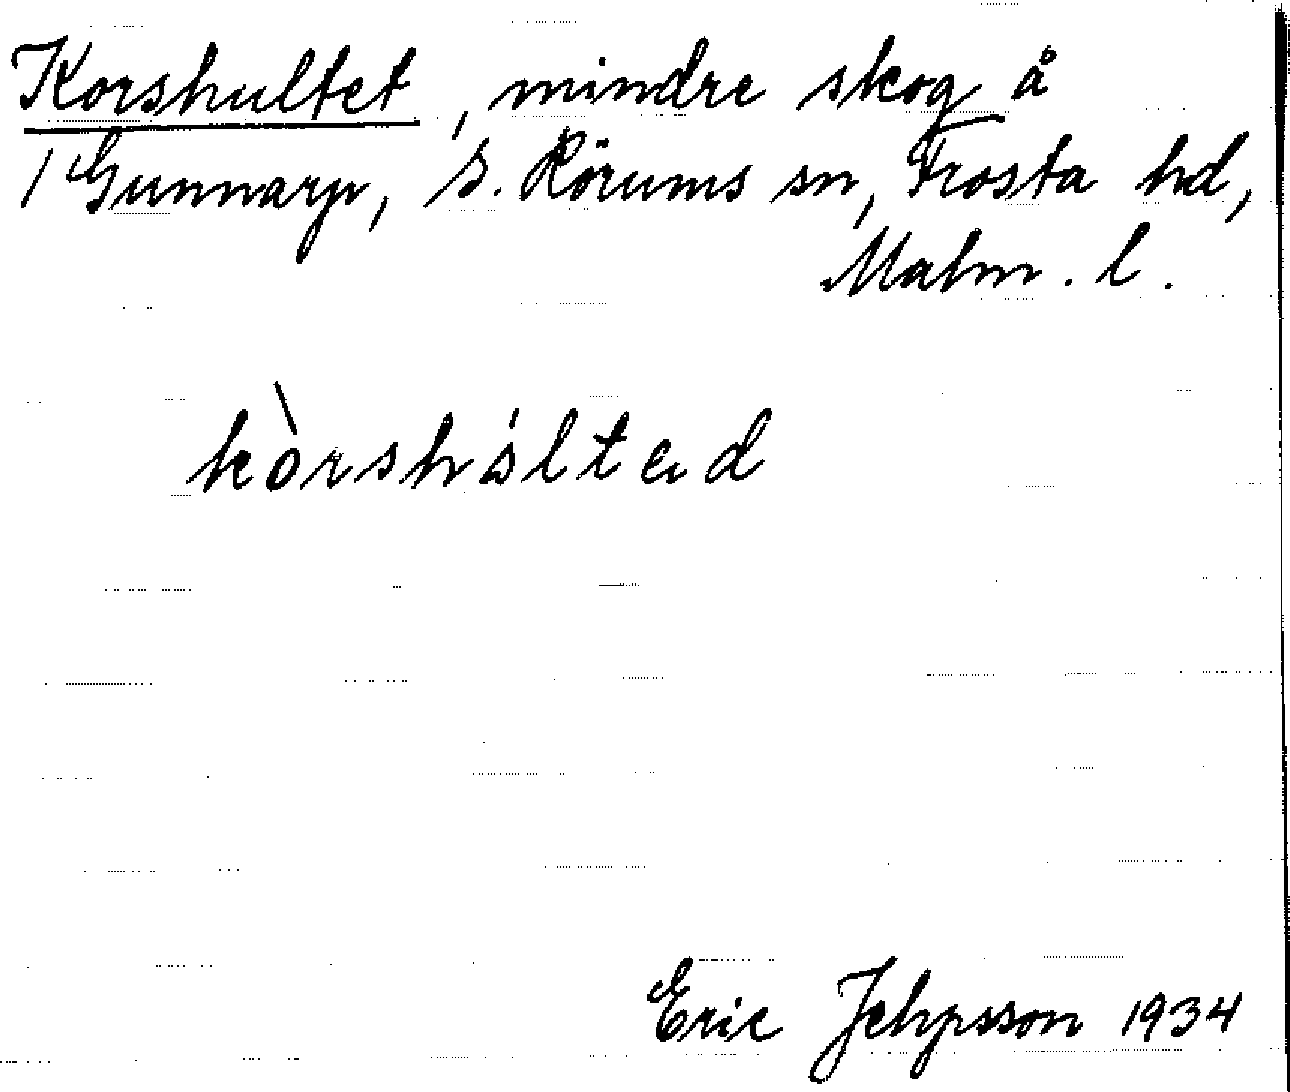 Korshultet, mindre skog å
1 Gunnarp, S. Rörums sn, Frosta hd,
Malm. l.
kòrsháltəd
Eric Jehpsson 1934